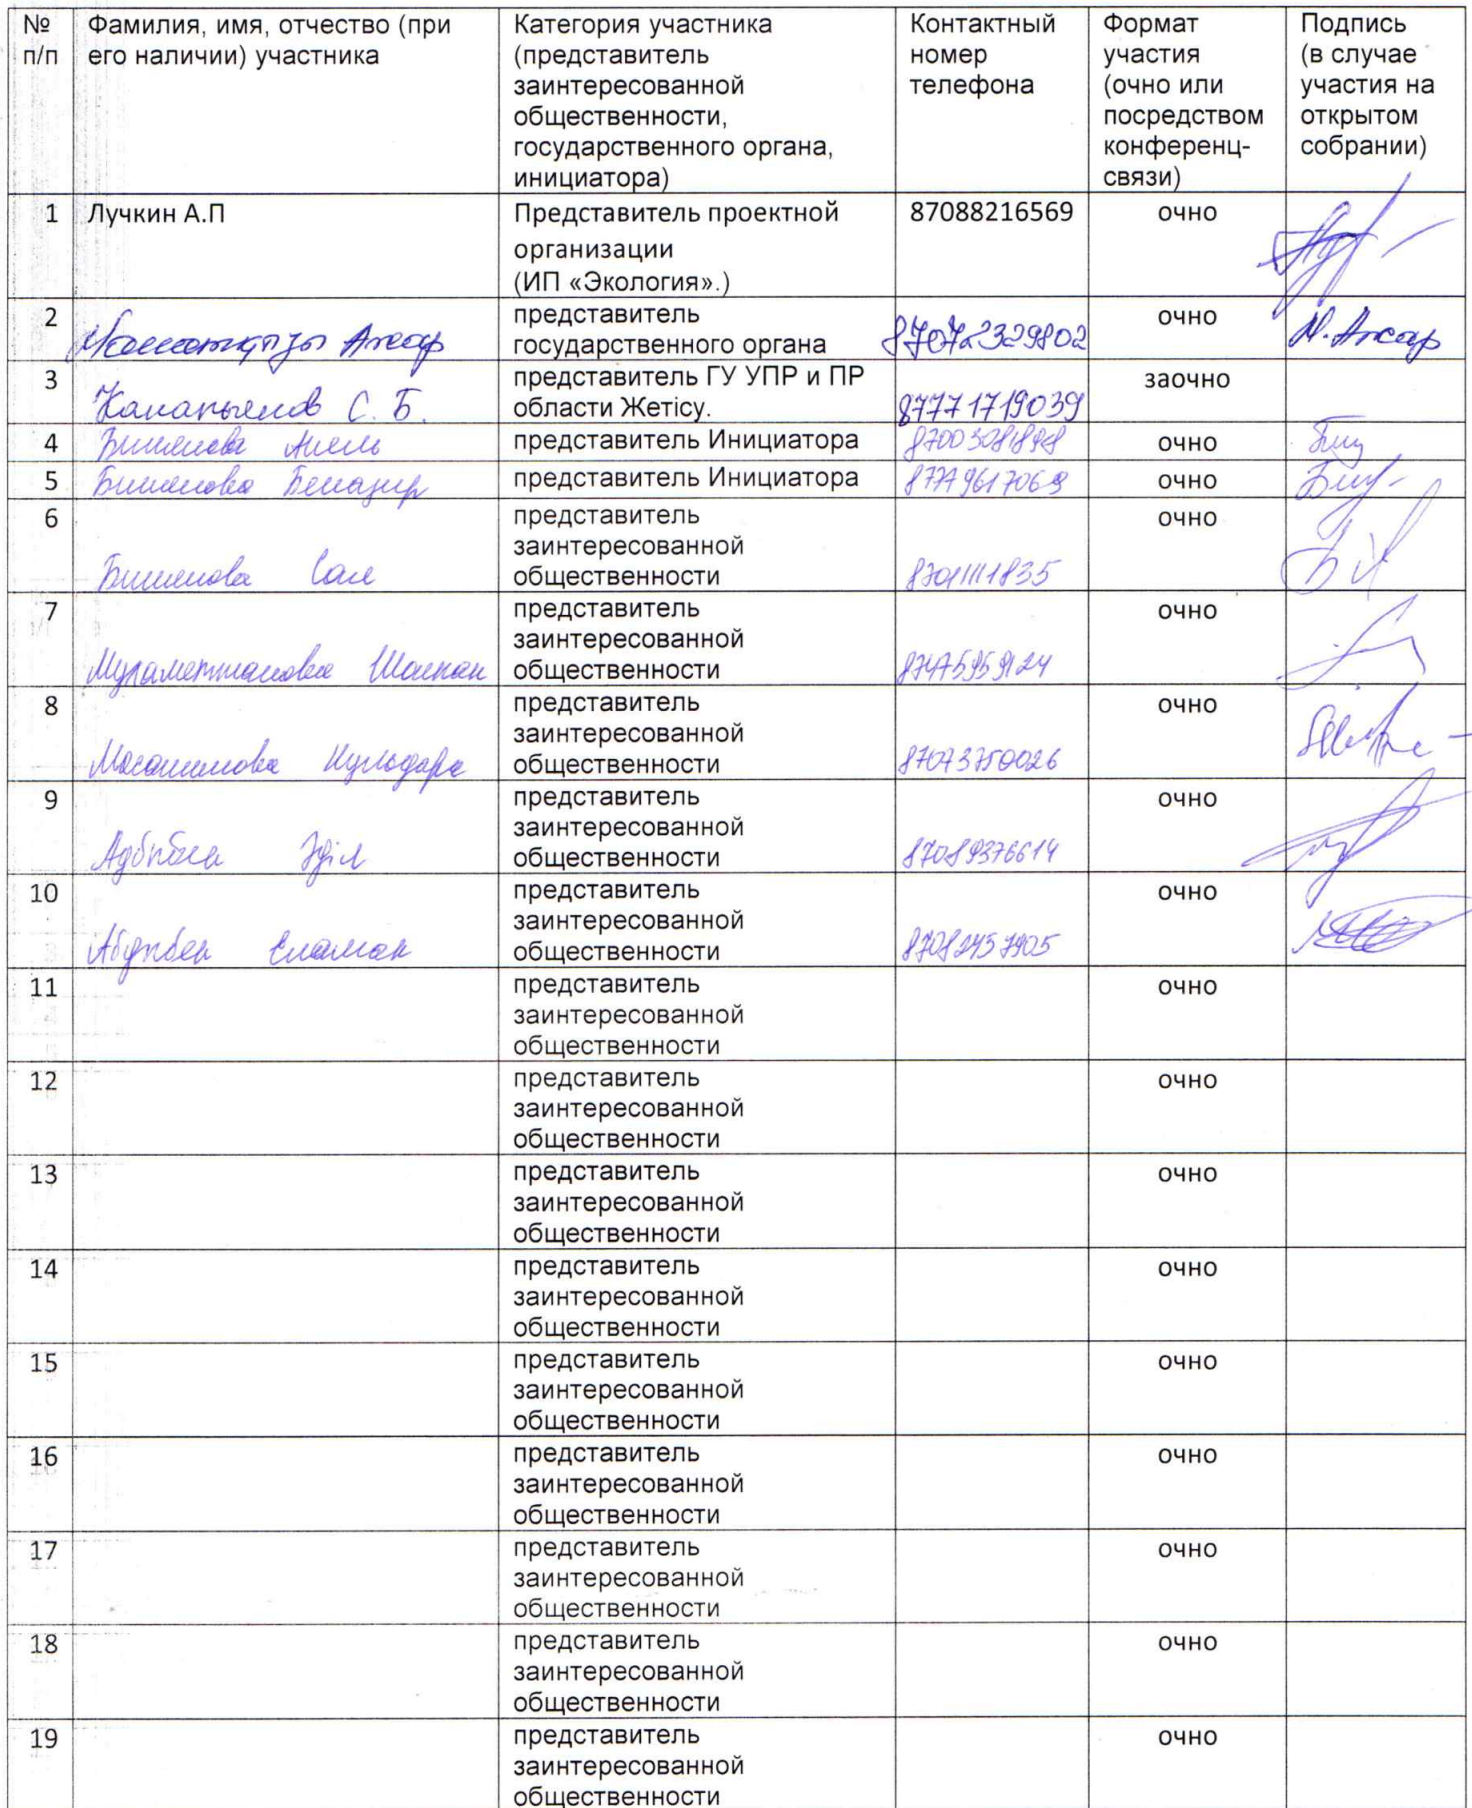 № п/п
Фамилия, имя, отчество (при его наличии) участника
Категория участника (представитель заинтересованной общественности, государственного органа, инициатора)
Контактный номер телефона
Формат участия (очно или посредством конференц-связи)
Подпись (в случае участия на открытом собрании)
1 Лучкин А.П Представитель проектной организации (ИП «Экология».) 87088216569 очно
2 представитель государственного органа 87072329802 очно
3 Канапьянов С. Б. представитель ГУ УПР и ПР области Жетісу. 87771719039 заочно
4 Бишенова представитель Инициатора очно
5 Бишенова Беназир представитель Инициатора 87779617069 очно
6 Бишенова представитель заинтересованной общественности 87011111835 очно
7 Шолпан представитель заинтересованной общественности 87475959124 очно
8 Масалимова представитель заинтересованной общественности 87073750026 очно
9 Әділ представитель заинтересованной общественности 87089376614 очно
10 Еламан представитель заинтересованной общественности 87082457905 очно
11 представитель заинтересованной общественности очно
12 представитель заинтересованной общественности очно
13 представитель заинтересованной общественности очно
14 представитель заинтересованной общественности очно
15 представитель заинтересованной общественности очно
16 представитель заинтересованной общественности очно
17 представитель заинтересованной общественности очно
18 представитель заинтересованной общественности очно
19 представитель заинтересованной общественности очно